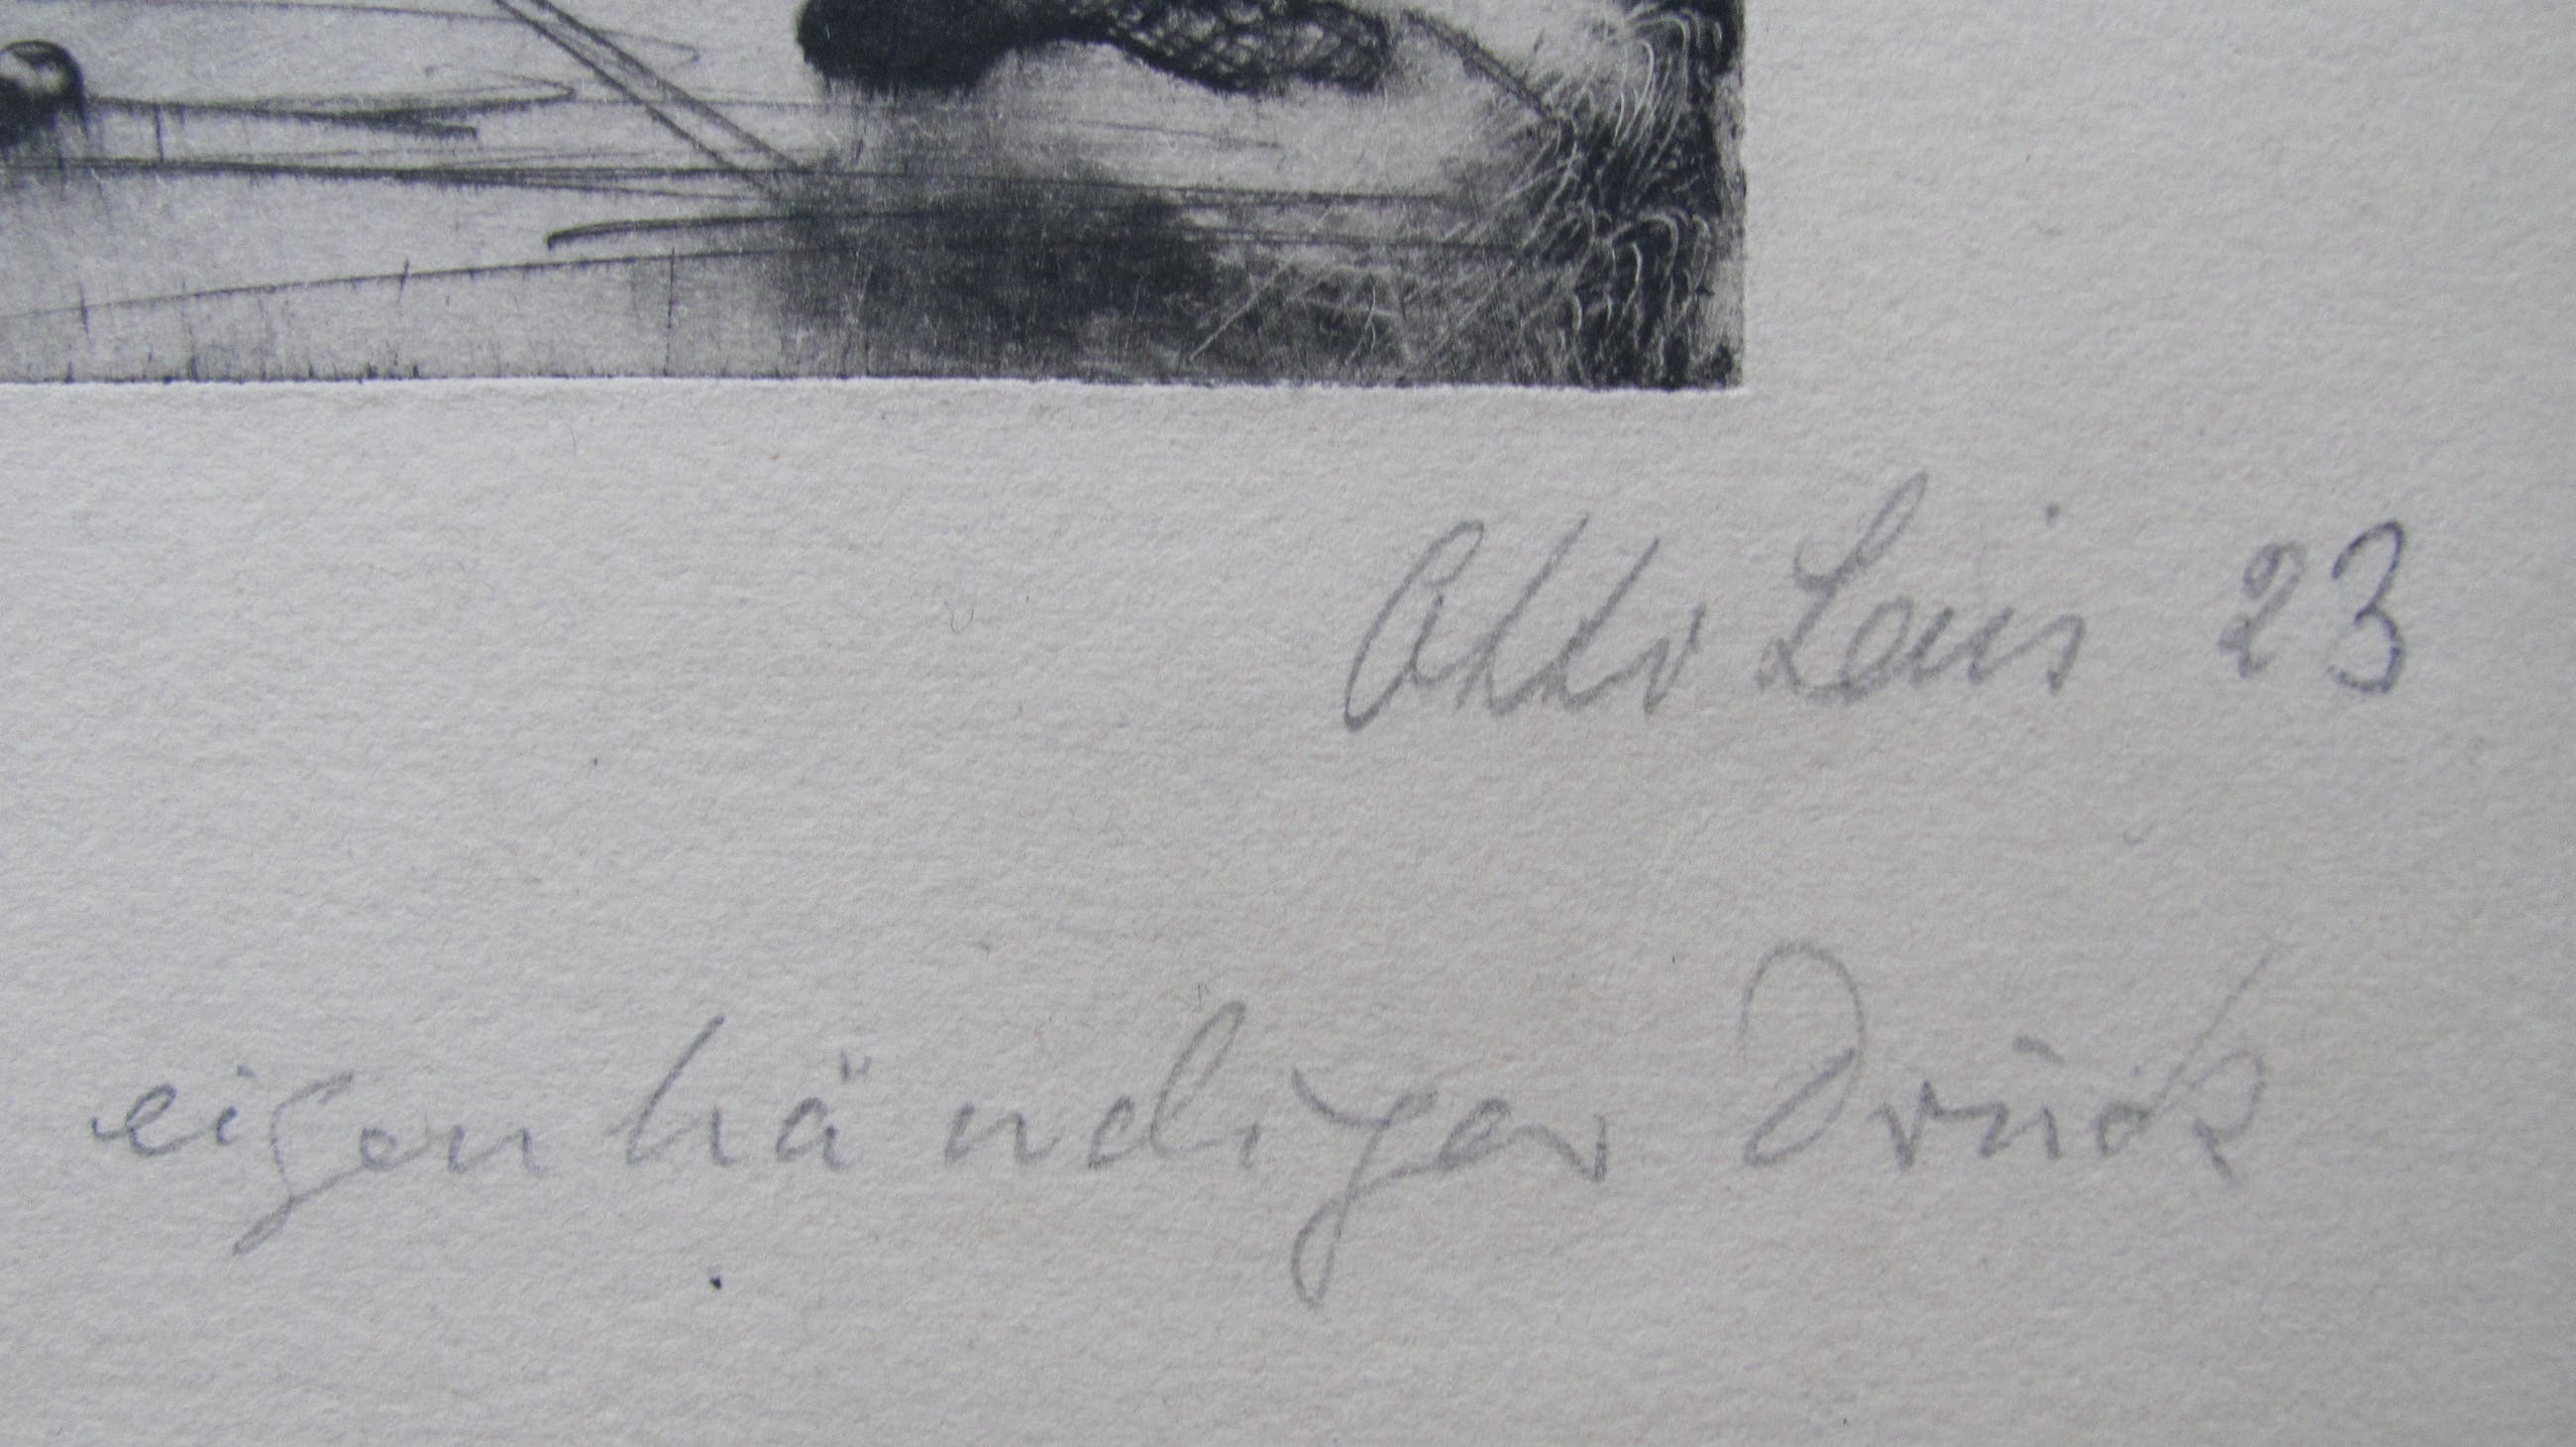 Otto Lais 23
eigenhändiger Druck